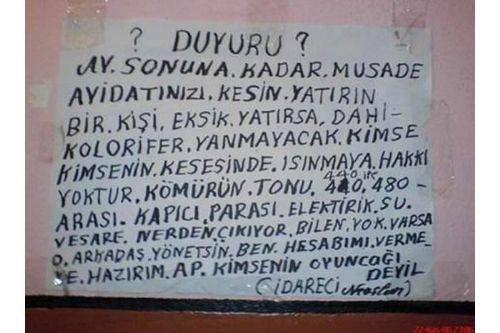 ? DUYURU ?
AY. SONUNA. KADAR. MUSADE
AYIDATINIZI. KESİN. YATIRIN
BİR. KİŞİ. EKSİK. YATIRSA. DAHİ-
KOLORİFER. YANMAYACAK. KİMSE
KİMSENİN. KESESİNDE. ISINMAYA. HAKKI
YOKTUR. KÖMÜRÜN. TONU. 440 440, 480-
ARASI. KAPICI. PARASI. ELEKTİRİK. SU.
VESARE. NERDEN. ÇIKIYOR. BİLEN. YOK. VARSA
O. ARKADAŞ. YÖNETSİN. BEN. HESABIMI. VERME-
YE. HAZIRIM. AP. KİMSENİN OYUNCAĞI
DEYİL
(İDARECİ